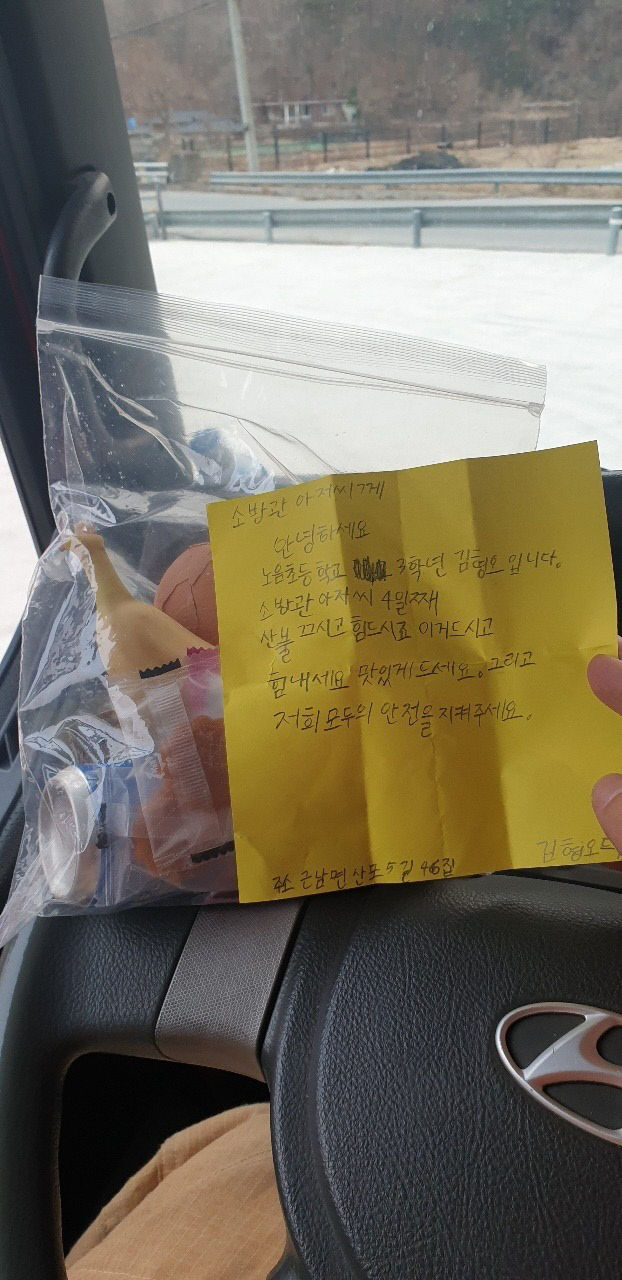 소방관 아저씨께
안녕하세요
노음초등학교 3학년 김형오 입니다.
소방관 아저씨 4일째
산불 끄시고 힘드시죠 이거드시고
힘내세요 맛있게 드세요. 그리고
저희 모두의 안전을 지켜주세요.
김형오
주소 근남면 산포5길 46집